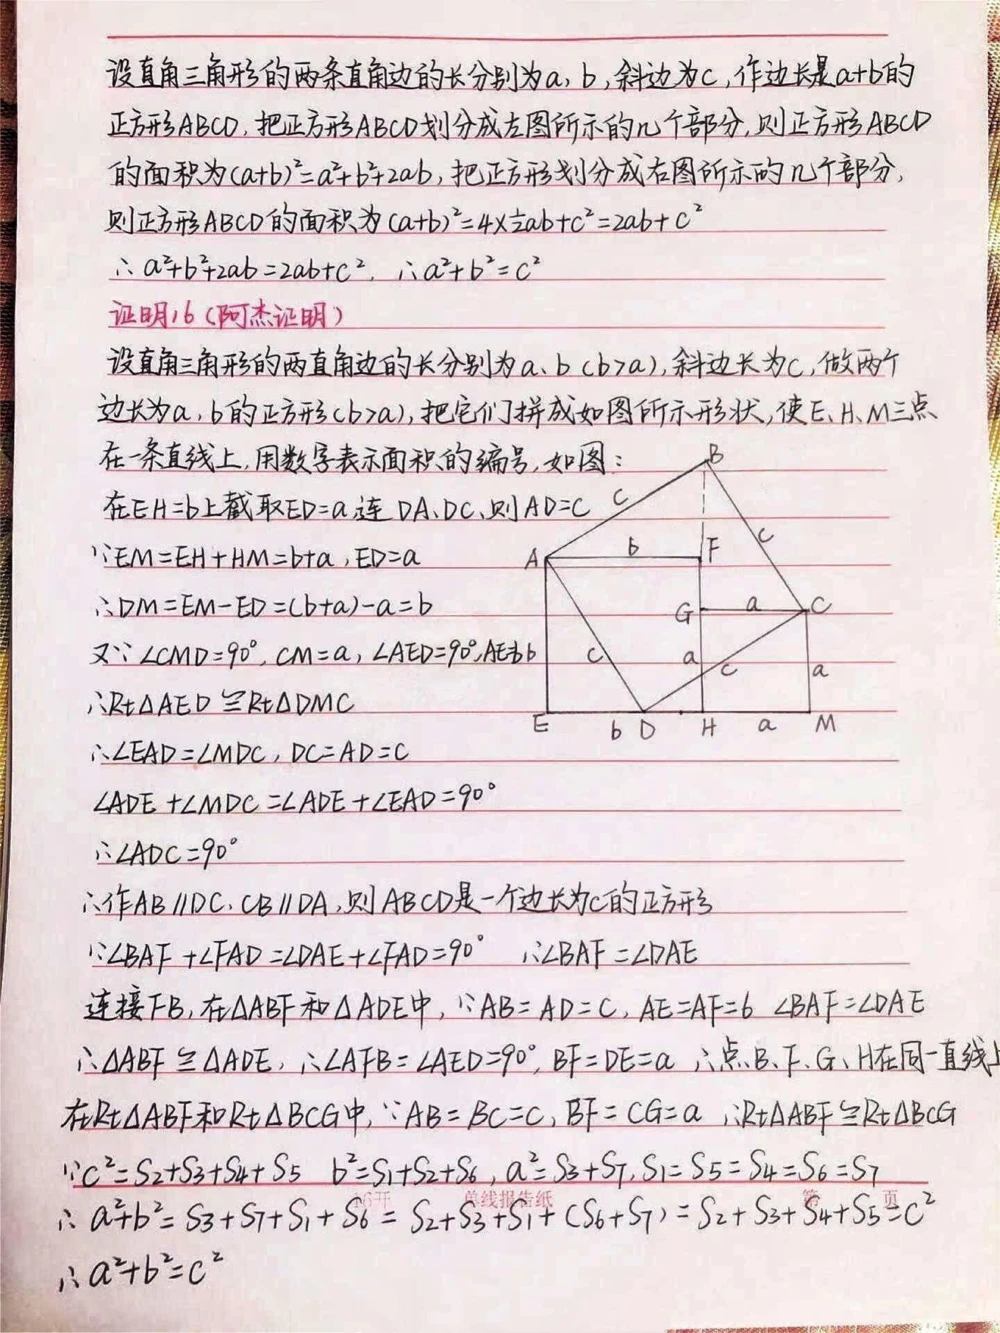 设直角三角形的两条直角边的长分别为a,b,斜边为c,作边长是a+b的
正方形ABCD,把正方形ABCD划分成左图所示的几个部分,则正方形ABCD
的面积为(a+b)²=a²+b²+2ab,把正方形划分成右图所示的几个部分,
则正方形ABCD的面积为(a+b)²=4×½ab+c²=2ab+c²
∴a²+b²+2ab=2ab+c², ∴a²+b²=c²
证明16(阿杰证明)
设直角三角形的两直角边的长分别为a、b(b>a),斜边长为c,做两个
边长为a,b的正方形(b>a),把它们拼成如图所示形状,使E、H、M三点
在一条直线上,用数字表示面积的编号,如图:
在EH=b上截取ED=a,连DA、DC,则AD=C
∵EM=EH+HM=b+a,ED=a
∴DM=EM-ED=(b+a)-a=b
又∵∠CMD=90°,CM=a,∠AED=90°,AE=b
∴Rt△AED≌Rt△DMC
∴∠EAD=∠MDC,DC=AD=C
∠ADE+∠MDC=∠ADE+∠EAD=90°
∴∠ADC=90°
∴作AB∥DC,CB∥DA,则ABCD是一个边长为c的正方形
∵∠BAF+∠FAD=∠DAE+∠FAD=90° ∴∠BAF=∠DAE
连接FB,在△ABF和△ADE中,∵AB=AD=C,AE=AF=b ∠BAF=∠DAE
∴△ABF≌△ADE,∴∠AFB=∠AED=90°,BF=DE=a ∴点B、F、G、H在同一直线上
在Rt△ABF和Rt△BCG中,∵AB=BC=C,BF=CG=a ∴Rt△ABF≌Rt△BCG
∵c²=S2+S3+S4+S5 b²=S1+S2+S6,a²=S3+S7,S1=S5=S4=S6=S7
16开 单线报告纸 第 页
∴a²+b²=S3+S7+S1+S6=S2+S3+S1+(S6+S7)=S2+S3+S4+S5=c²
∴a²+b²=c²
B
c
c
A
b
F
G
a
C
c
a
c
a
E
b
D
H
a
M